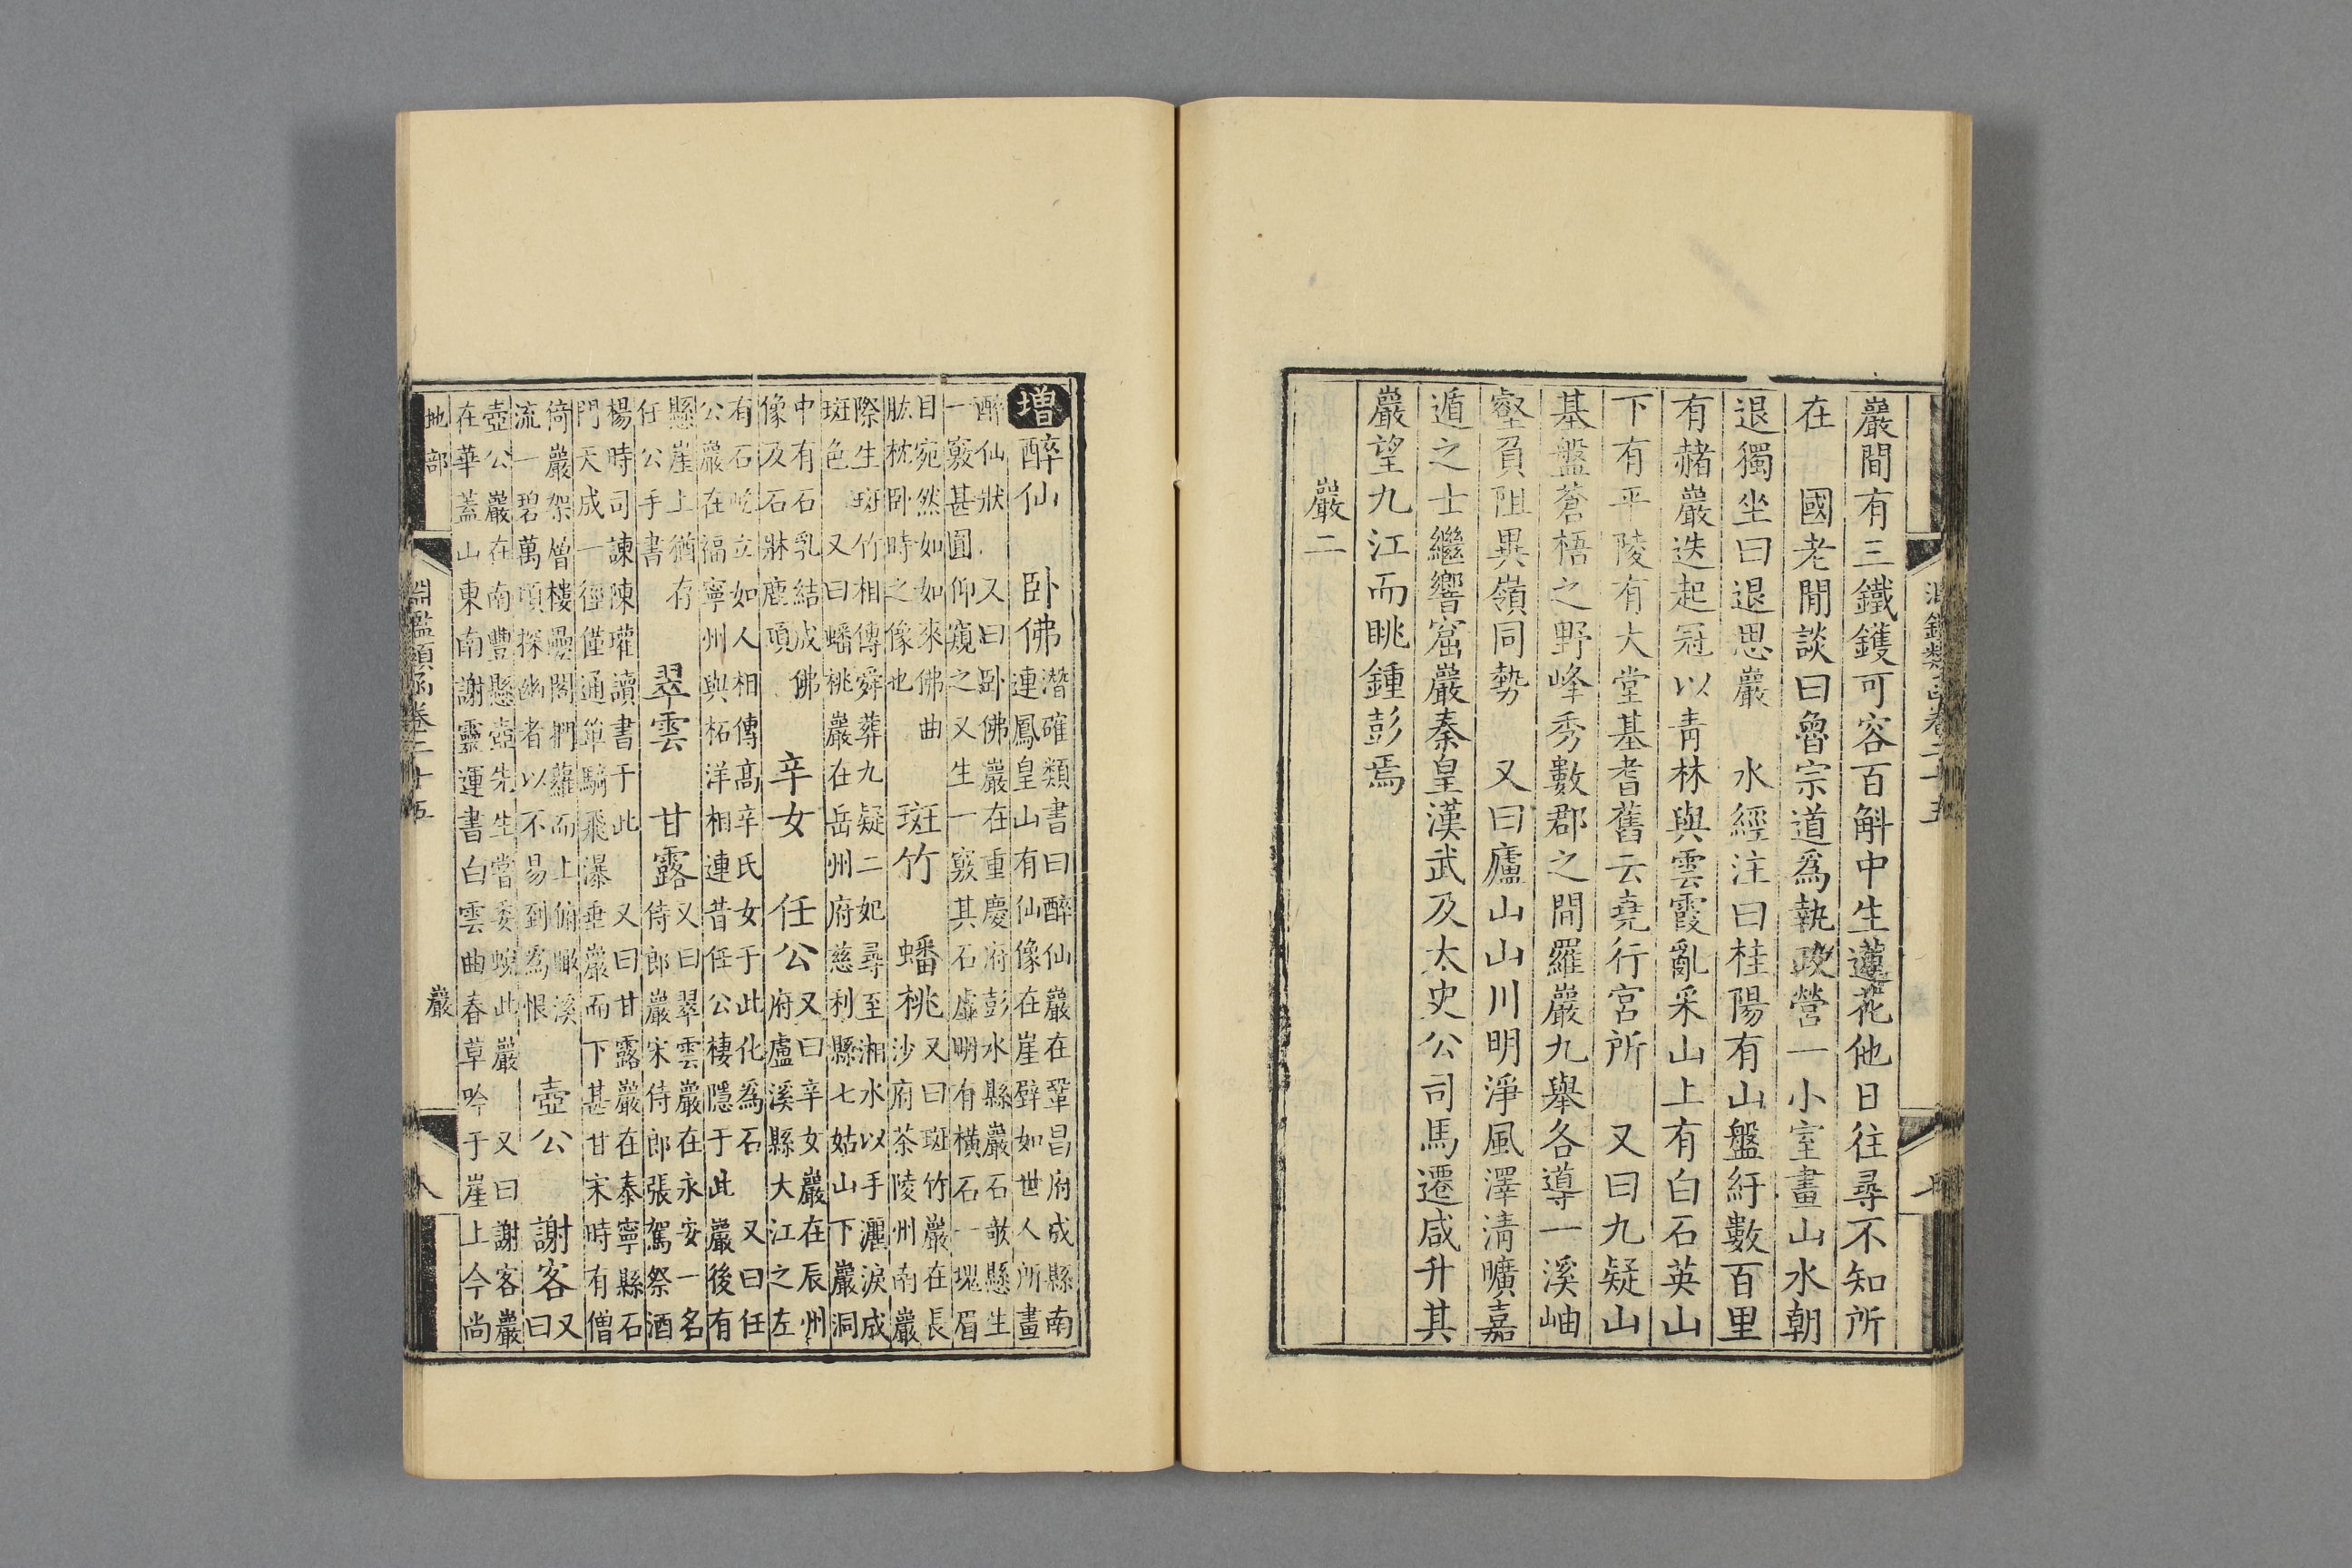 巖間有三鐵鑊可容百斛中生蓮花他日往尋不知所
在　國老閒談曰魯宗道爲執政營一小室畫山水朝
退獨坐曰退思巖　水經注曰桂陽有山盤紆數百里
有赭巖迭起冠以青林與雲霞亂采山上有白石英山
下有平陵有大堂基耆舊云堯行宮所　又曰九疑山
基盤蒼梧之野峰秀數郡之間羅巖九舉各導一溪岫
壑負阻異嶺同勢　又曰廬山山川明淨風澤清曠嘉
遁之士繼響窟巖秦皇漢武及太史公司馬遷咸升其
巖望九江而眺鍾彭焉
巖二
增醉仙　臥佛
潛確類書曰醉仙巖在鞏昌府成縣南
連鳳皇山有仙像在崖壁如世人所畫
醉仙狀　又曰臥佛巖在重慶府彭水縣巖石欹懸生
一竅甚圓仰窺之又生一竅其石虛明有橫石一塊眉
目宛然如如來佛曲
肱枕臥時之像也
斑竹　蟠桃
又曰斑竹巖在長
沙府茶陵州南巖
際生斑竹相傳舜葬九疑二妃尋至湘水以手灑淚成
斑色　又曰蟠桃巖在岳州府慈利縣七姑山下巖洞
中有石乳結成佛
像及石牀塵頂
辛女　任公
又曰辛女巖在辰州
府盧溪縣大江之左
有石屹立如人相傳高辛氏女于此化爲石　又曰任
公巖在福寧州與柘洋相連昔任公棲隱于此巖後有
懸崖上猶存
任公手書
翠雲　甘露
又曰翠雲巖在永安一名
侍郎巖宋侍郎張駕祭酒
楊時司諫陳瓘讀書于此　又曰甘露巖在泰寧縣石
門天成一徑僅通單騎飛瀑垂巖而下甚甘宋時有僧
倚巖架層樓疊閣捫蘿而上俯瞰溪
流一碧萬頃探幽者以不易到爲恨
壺公　謝客
又
曰
壺公巖在南豐縣壺先生嘗委蛻此巖　又曰謝客巖
在華蓋山東南謝靈運書白雲曲春草吟于崖上今尚
地部
淵鑑類函卷二十五
巖
八